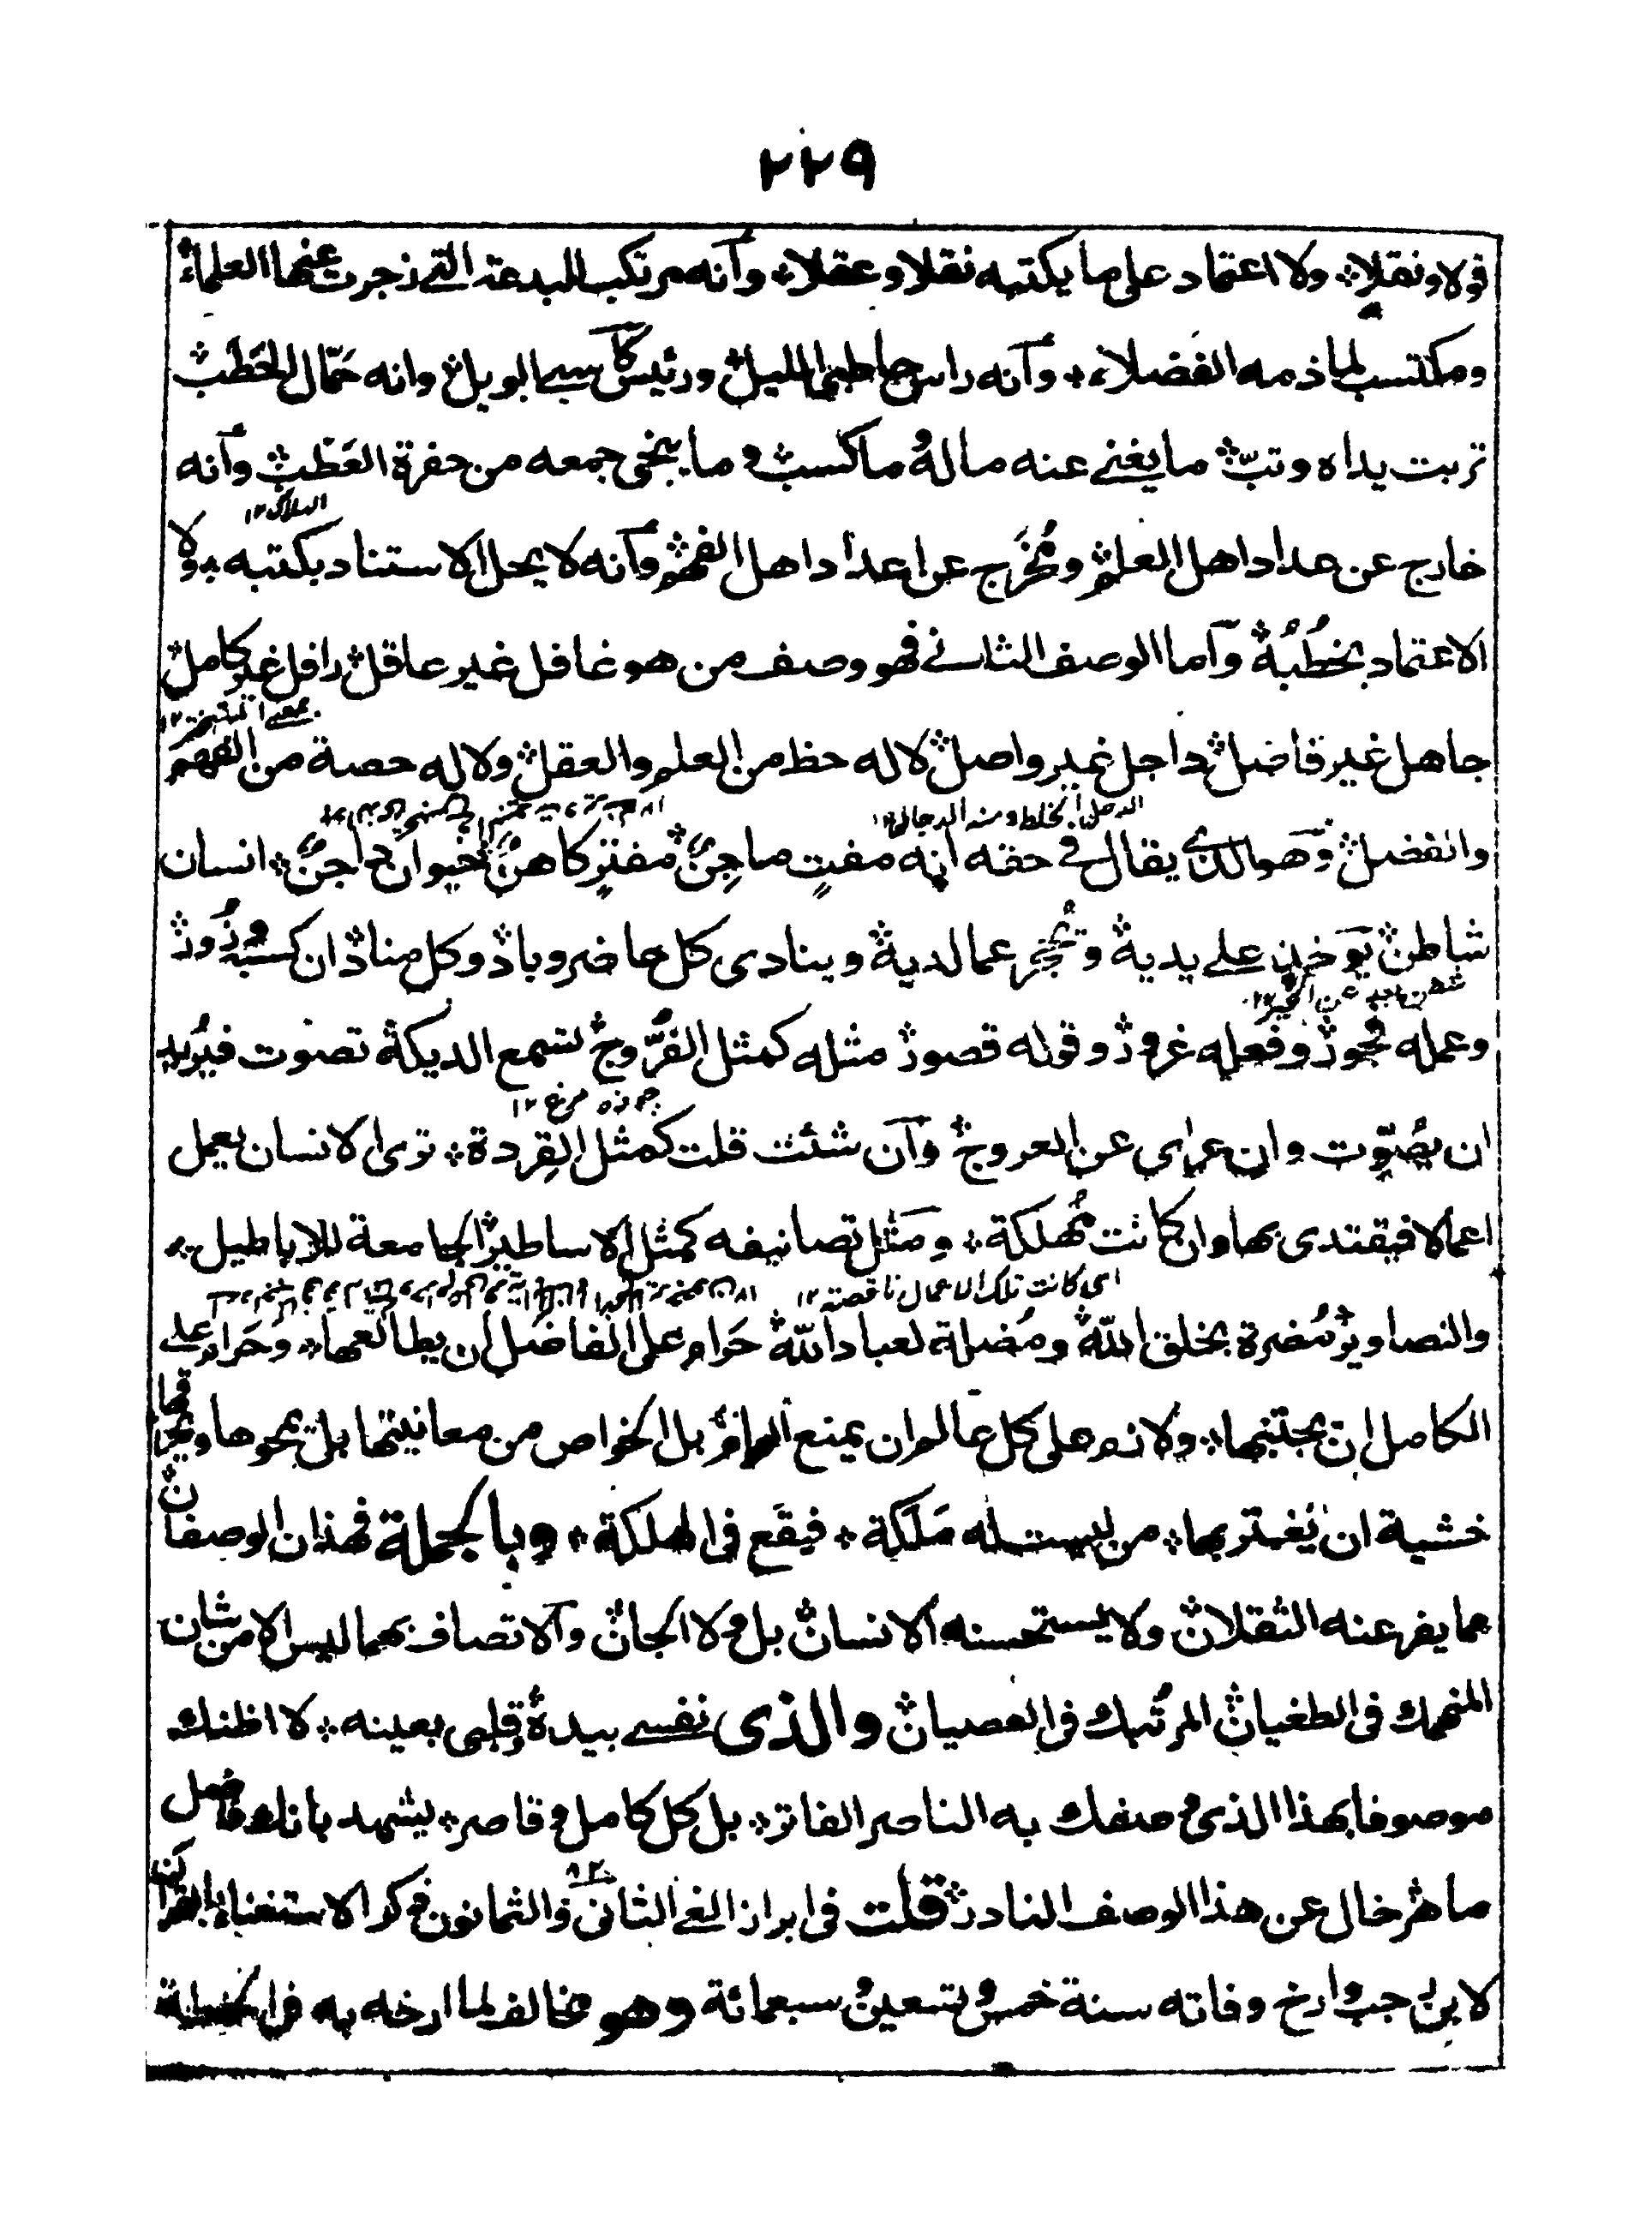 ٢٢٩
قولا ونقلا ولا اعتماد على ما يكتبه نقلا وعقلا وآنه مرتكب للبدعة التي زجرت عنها العلماء
ومكتسب لما ذمه الفضلاء وآنه راس حاطبي الليل ورئيس كاسبي الويل وانه حمّال الحَطَب
تربت يداه وتبّ ما يغني عنه ماله وما كسب وما ينجى جمعه من حفرة العَطَب وآنه
الهلاك ١٢
خارج عن عداد اهل العلم ومُخرَج عن اعداد اهل الفهم وآنه لا يحل الاستناد بكتبه ولا
الاعتماد بخُطُبه وآما الوصف الثاني فهو وصف من هو غافل غير عاقل رافل غير كامل
بمعنى المتبختر ١٢
جاهل غير فاضل داجل غير واصل لا له حظ من العلم والعقل ولا له حصة من الفهم
الدجل الخلط ومنه الدجال ١٢
والفضل وهو الذي يقال في حقه انه مفتٍ ماجنٌ مفترٍ كاهنٌ حيوان داجنٌ انسان
شاطن يؤخذ على يديه ويُحجر عما لديه وينادى كل حاضر وباد وكل مناد ان كسبه زُور
شطن بعد عن الخير ١٢
وعمله فجور وفعله غرور وقوله قصور مثله كمثل الفرّوج تسمع الديكة تصوت فيُريد
چوزه مرغ ١٢
ان يصوّت وان عرى عن العروج وآن شئت قلت كمثل القِردة ترى الانسان يعمل
اعمالا فيقتدى بها وان كانت مُهلكة ومَثَل تصانيفه كمثل الاساطير الجامعة للاباطيل
اى كانت تلك الاعمال ناقصة ١٢
والتصاوير مُضرة بخلق الله ومُضلة لعباد الله حَرام على الفاضل ان يطالعها وحَرام على
الكامل ان يجتنبها ولازم على كل عالم ان يمنع العوام بل الخواص من معاينتها بل يمحوها ويحرقها
خشية ان يُغتر بها من ليست له مَلَكة فيقَع في الهلكة وبالجملة فهذان الوصفان
مما يفر عنه الثقلان ولا يستحسنه الانسان بل ولا الجان وآلاتصاف بهما ليس الا من شان
المنهمك في الطغيان المرتبك في العصيان والذى نفسي بيده وقلبى بعينه لا اظنك
موصوفا بهذا الذى وصفك به الناصر الفاتر بل كل كامل وقاصر يشهد بانك فاضل
ماهر خال عن هذا الوصف النادر قلت في ابراز الغي الثاني والثمانون ٨٢ ذكر الاستغناء بالقرآن
لابن رجب وارخ وفاته سنة خمس وتسعين وسبعمائة وهو مخالف لما ارخه به في الحطة